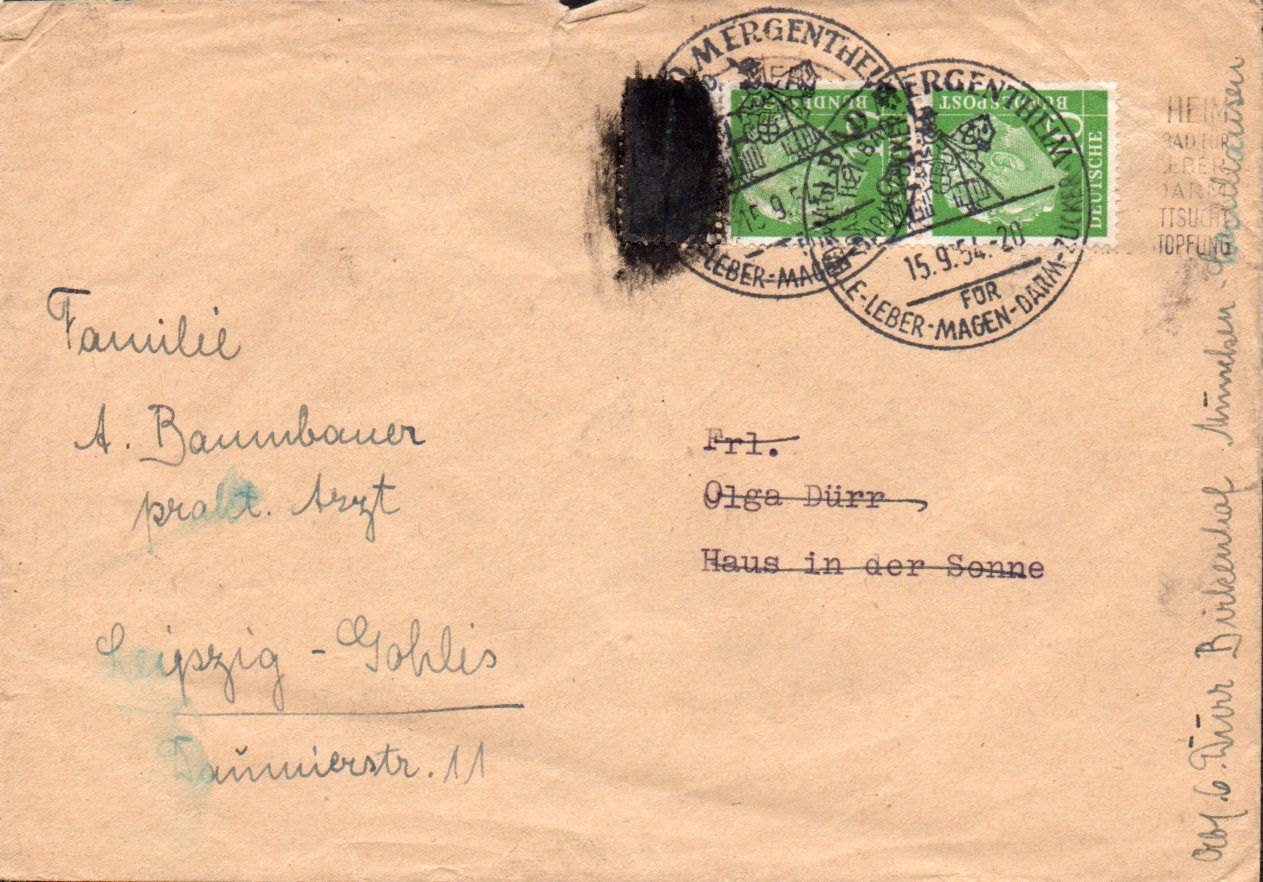 D. MERGENTHEIM
15.9.54
-LEBER-MAG
ERGENTHEIM
15.9.54.-20
FÜR
E-LEBER-MAGEN-DARM-ZUCKER
BUNDES
BUNDESPOST
DEUTSCHE
HEIM
BAD FÜR
LEBER
DARM
TTSUCHT
TOPFUNG
Familie
A. Baumbauer
prakt. Arzt
Leipzig - Gohlis
Daumierstr. 11
Frl.
Olga Dürr
Haus in der Sonne
Dürr Birkenhof München -